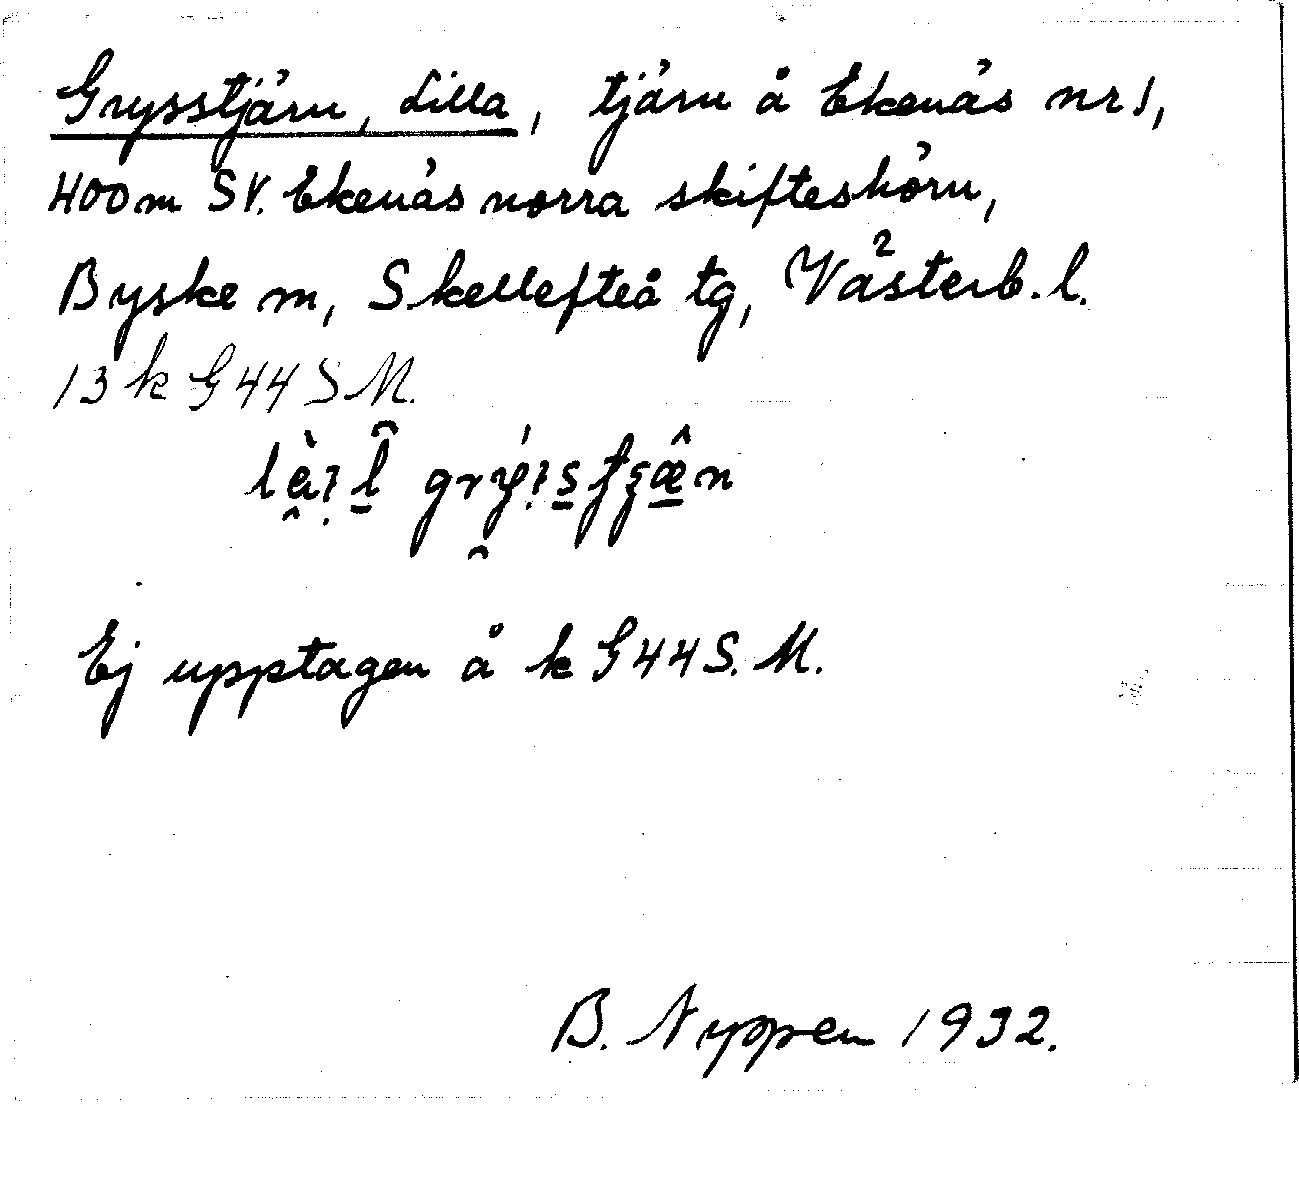 Grysstjärn, Lilla, tjärn å Ekenäs nr 1,
400 m SV. Ekenäs norra skifteshörn,
Byske m, Skellefteå tg, Västerb. l.
13 k G 44 S M.
Ej upptagen å k G 44 S. M.
B. Nyppen 1932.